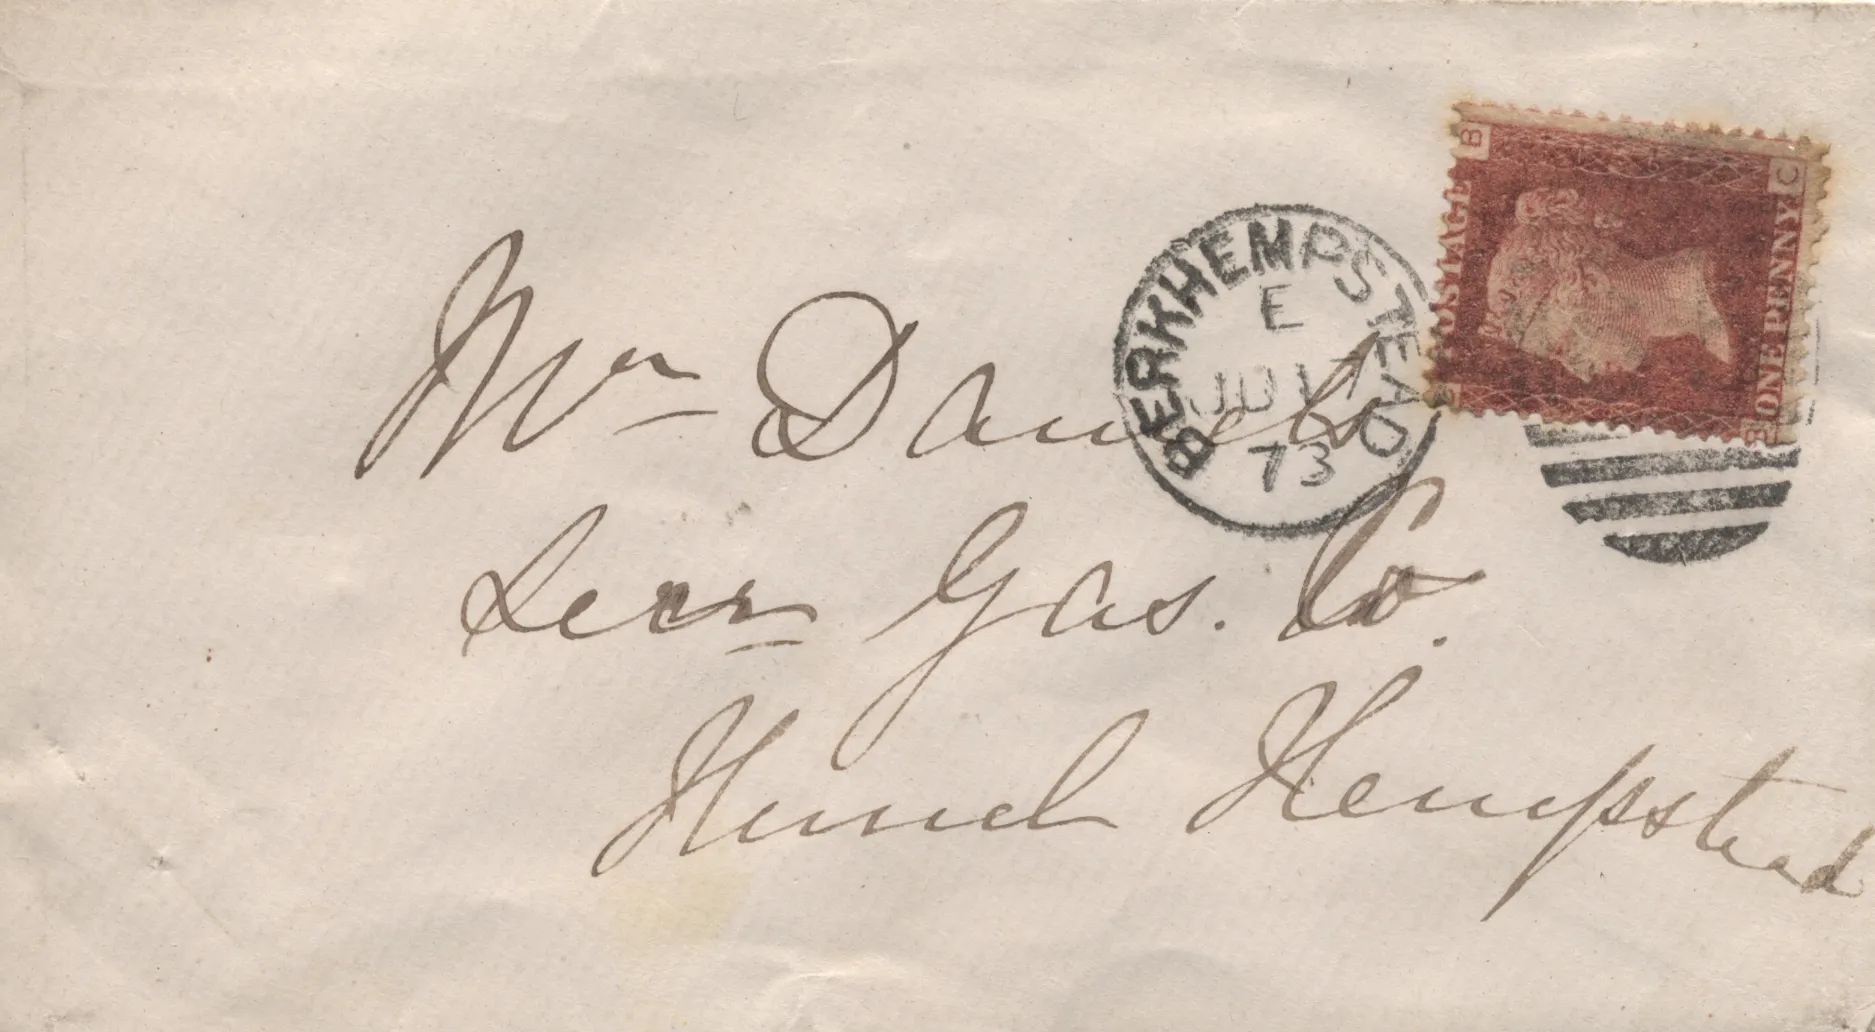 BERKHEMPSTEAD
E
JU 17
73
B
C
POSTAGE
ONE PENNY
Mr Daniels
Secr Gas. Co.
Hemel Hempstead